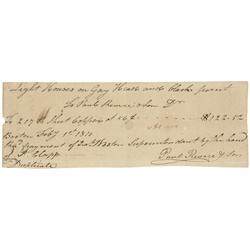 Light Houses on Gay Head and Clarks point
To Paul Revere & Son Dr
217 lb Sheet Copper at 56 ¢ $122.52
Boston Feby 1st 1810
Recd payment of Superintendent by the hand
Clapp
Duplicate
Paul Revere & Son